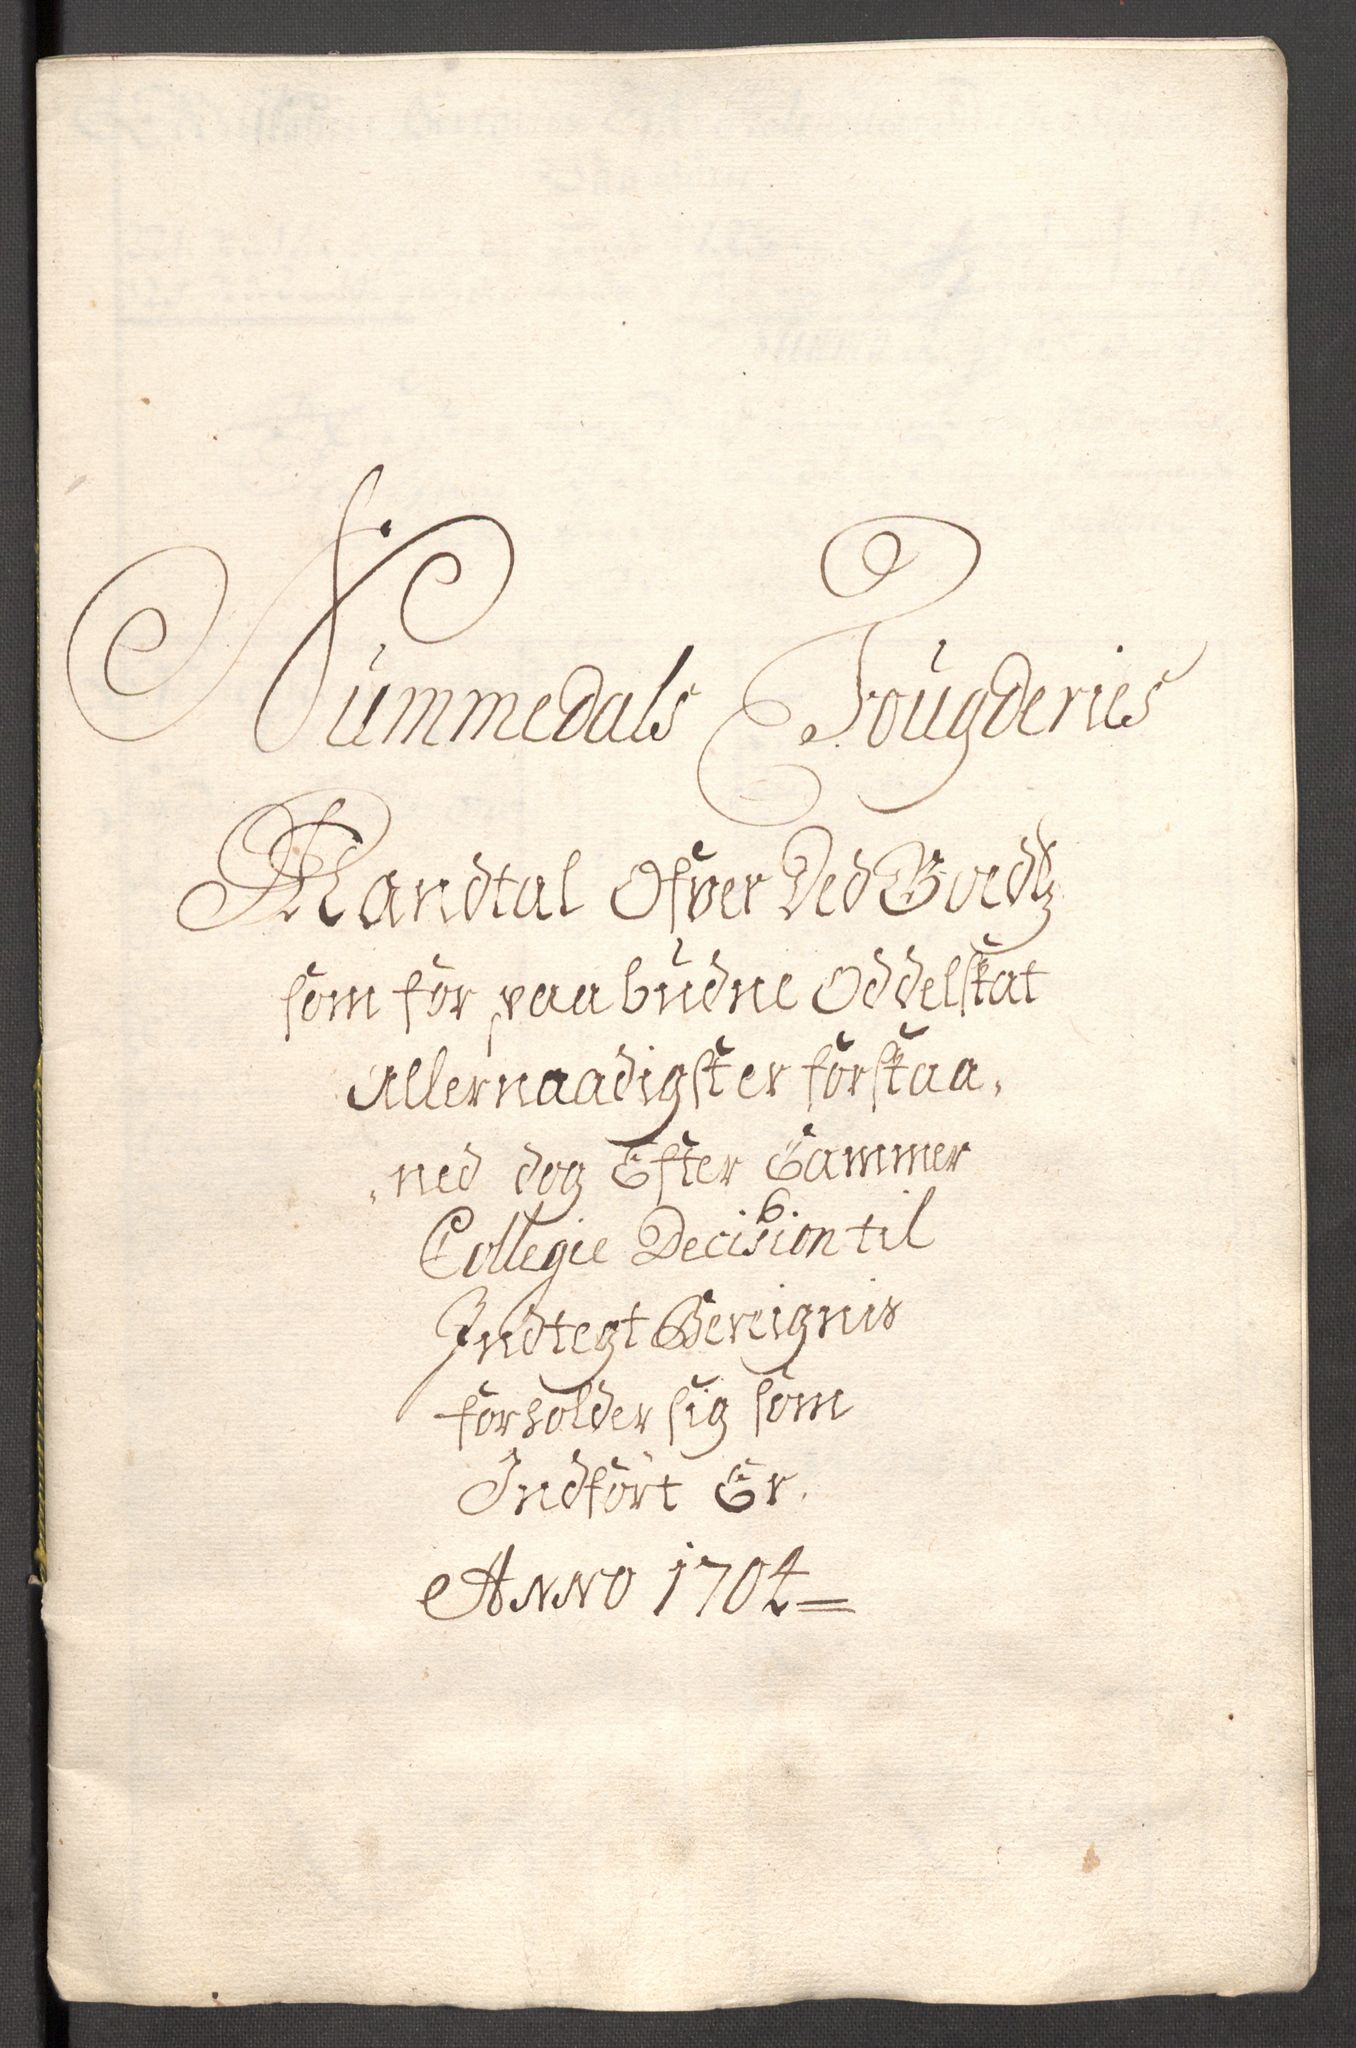 Nummedals Fougderies
Mandtal Ofver Ded Goedtz
som for paabudne Oddelskat
Allernaadigst er forskaa„
„ned dog Efter Cammer
Collegie Decision til
Indtegt Bereignis
forholder sig som
Indført Er.
Anno 1704